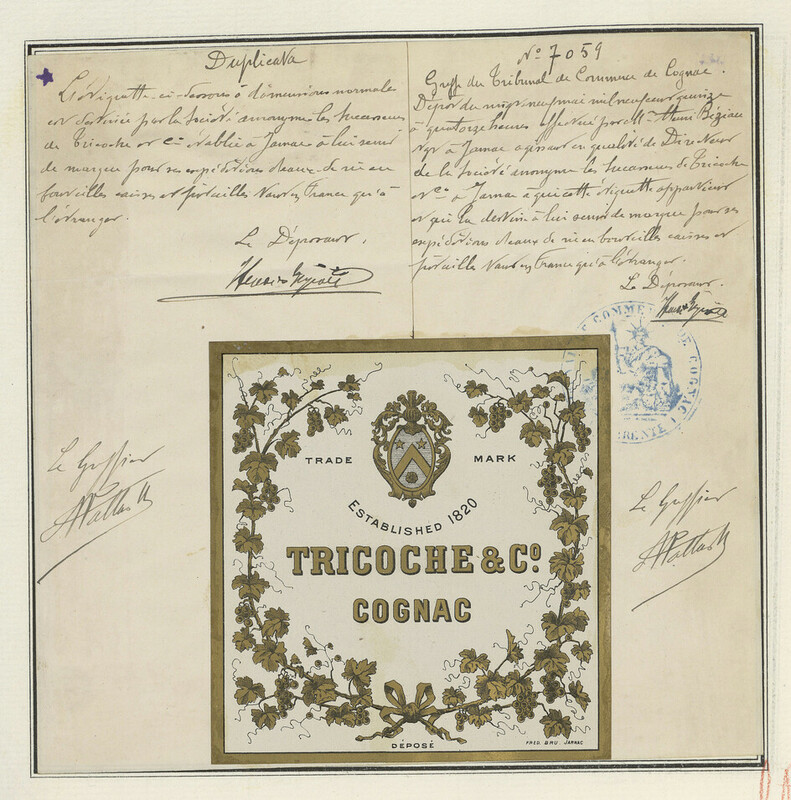 Duplicata
L'étiquette ci-dessous à dimensions normales
est destinée par la Société anonyme les successeurs
de Tricoche et Cie établie à Jarnac à lui servir
de marque pour ses expéditions d'eaux-de-vie en
bouteilles caisses et futailles tant en France qu'à
l'étranger.
Le Déposant,
No 7059
Greffe du Tribunal de Commerce de Cognac.
Dépôt du vingt neuf mai mil neuf cent quinze
à quatorze heures effectué par Mr Henri
à Jarnac agissant en qualité de Directeur
de la Société anonyme les successeurs de Tricoche
et Cie à Jarnac à qui cette étiquette appartient
et qui la destine à lui servir de marque pour ses
expéditions d'eaux de vie en bouteilles caisses et
futailles tant en France qu'à l'étranger.
Le Déposant,
COMMERCE DE COGNAC
Le Greffier
Le Greffier
TRADE MARK
ESTABLISHED 1820
TRICOCHE & Co.
COGNAC
DÉPOSÉ
FRED BRU. JARNAC